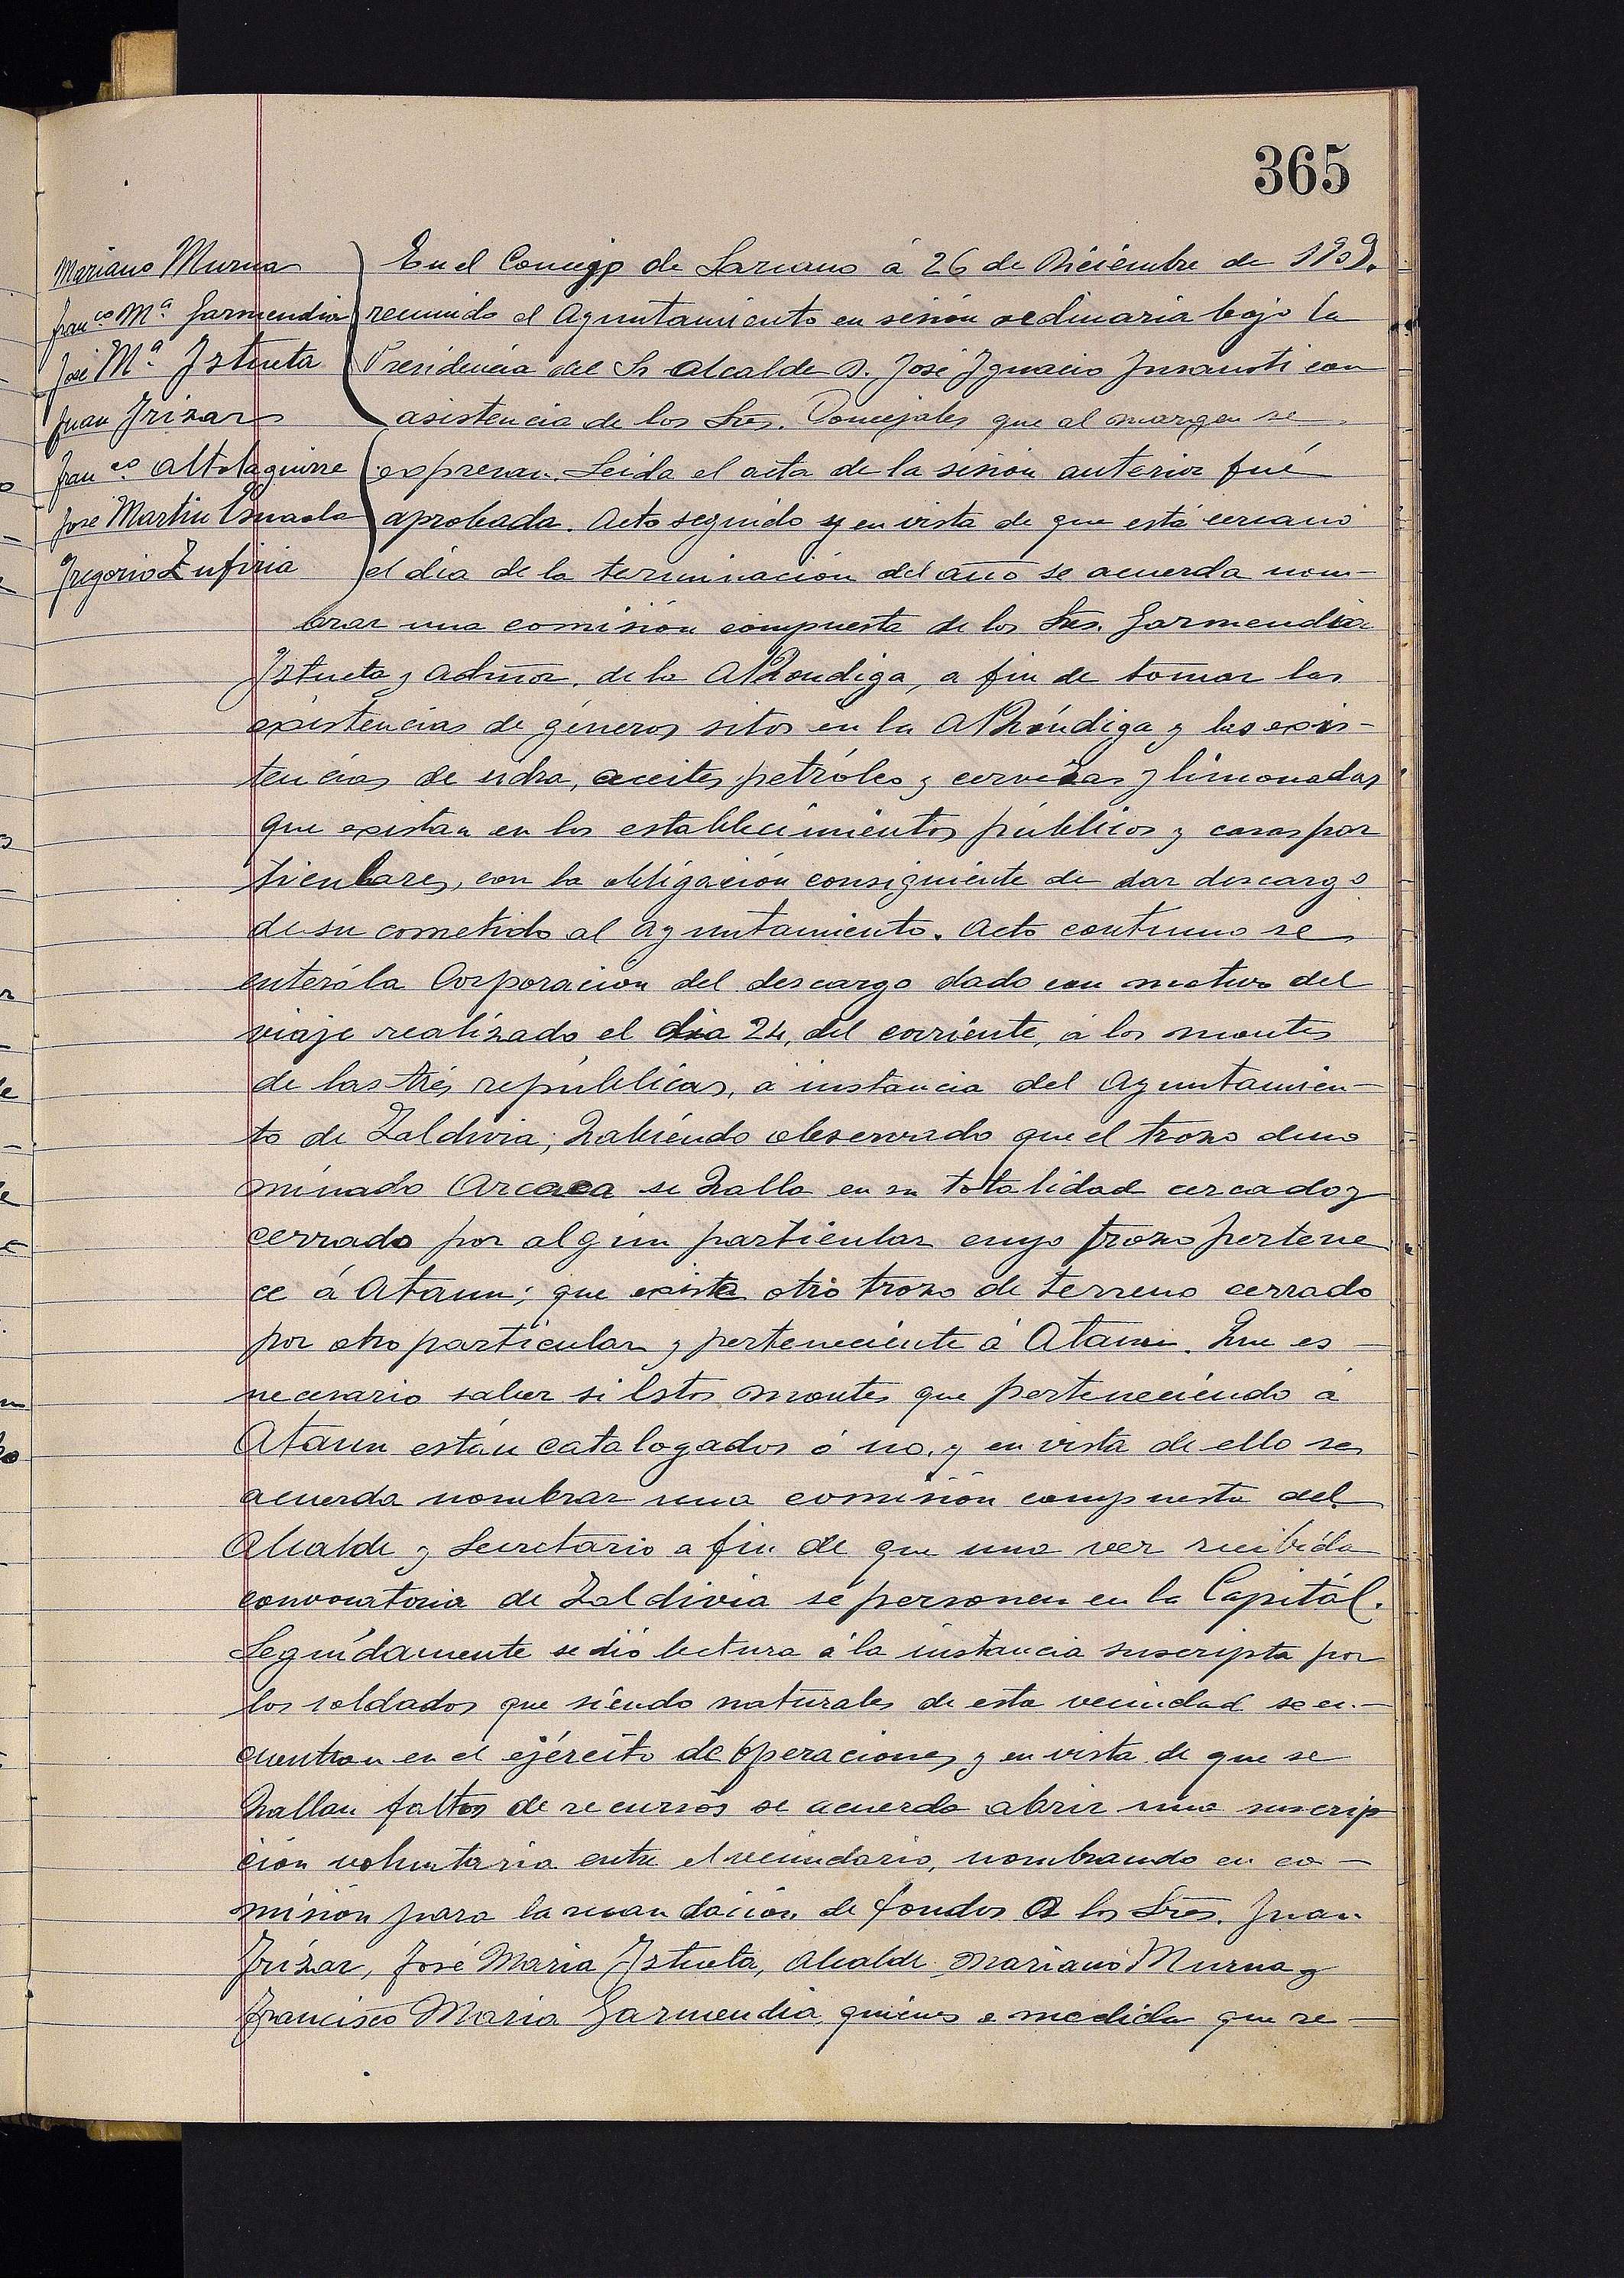 365
Mariano Murua
Franco Ma Garmendia
José Ma Iztueta
Juan Irizar
Franco Altolaguirre
José Martin Usuaola
Gregorio Zufiria
En el Concejo de Lazcano á 26 de Diciembre de 1909.
reunido el Ayuntamiento en sesión ordinaria bajo la
Presidencia del Sr Alcalde D. José Ignacio Insausti con
asistencia de los Sres. Concejales que al margen se
expresan. Leida el acta de la sesión anterior fué
aprobada. Acto seguido y en vista de que está cercano
el dia de la terminación del año se acuerda nom-
brar una comisión compuesta de los Sres. Garmendia
Iztueta y Admor. de la Alhondiga, a fin de tomar las
existencias de géneros sitos en la Alhóndiga y las exis-
tencias de sidra, aceites, petróleo y cervezas y limonadas
que existan en los establecimientos públicos y casas par
ticulares, con la obligación consiguiente de dar descargo
de su cometido al Ayuntamiento. Acto continuo se
enteró la Corporación del descargo dado con motivo del
viaje realizado el dia 24, del corriente, á los montes
de las trés repúblicas, a instancia del Ayuntamien-
to de Zaldivia; habiendo observado que el trozo deno
minado Arcaca se halla en su totalidad cercado y
cerrado por algún particular cuyo trozo pertene
ce á Ataun; que existe otro trozo de terreno cerrado
por otro particular y perteneciente á Ataun. Que es
necesario saber si estos montes que perteneciendo á
Ataun están catalogados ó no, y en vista de ello se
acuerda nombrar una comisión compuesta del
Alcalde y Secretario a fin de que una vez recibida
convocatoria de Zaldivia se personen en la Capital.
Seguidamente se dió lectura á la instancia suscripta por
los soldados que siendo naturales de esta vecindad se en-
cuentran en el ejército de operaciones y en vista de que se
hallan faltos de recursos se acuerda abrir una suscrip
ción voluntaria entre el vecindario, nombrando en co-
misión para la recaudación de fondos a los Sres. Juan
Irizar, José Maria Iztueta, Alcalde, Mariano Murua y
Francisco Maria Garmendia quienes a medida que re-